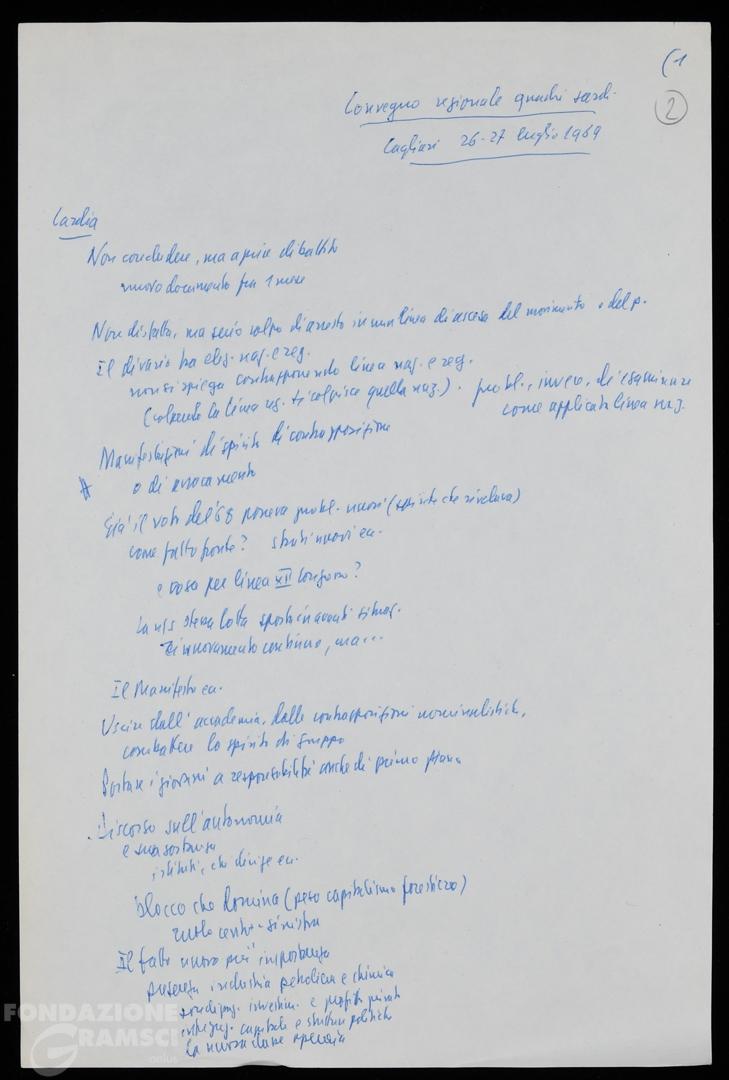 (1
2
Convegno regionale quadri sardi
Cagliari 26-27 luglio 1969
Cardia
Non concludere, ma aprire dibattito
nuovo documento fra 1 mese
Non disfatta, ma serio colpo di arresto in una linea di ascesa del movimento e del p.
Il divario tra elez. naz. e reg.
non si spiega contrapponendo linea naz. e reg.
(colpendo la linea reg. si colpisce quella naz.). probl., invece, di esaminare
come applicata linea naz.
Manifestazioni di spirito di contrapposizione
o di arroccamento
Già il voto del '68 poneva probl. nuovi ( che rivelava)
come fatto fronte? strati nuovi ecc.
e cosa per linea XII Congresso?
La n/s stessa lotta sposta in avanti situaz.
Rinnovamento continuo, ma...
Il Manifesto ecc.
Uscire dall'accademia, dalle contrapposizioni nominalistiche,
combattere lo spirito di gruppo
Portare i giovani a responsabilità anche di primo piano
Discorso sull'autonomia
e sua sostanza
istituti, chi dirige ecc.
blocco che domina (peso capitalismo forestiero)
ruolo centro-sinistra
Il fatto nuovo più importante
presenza industria petrolifera e chimica
investim. e profitti privati
capitale e strutture politiche
la nuova classe operaia
FONDAZIONE
GRAMSCI
onlus